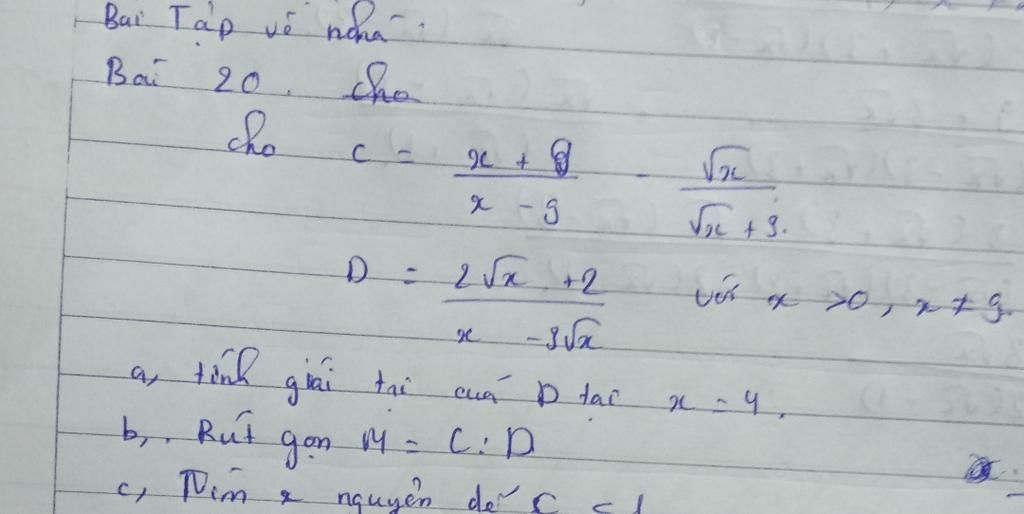 Bai Tập về nhà:
Bài 20. Cho
Cho C = (x + 9)/(x - 9) - √x/(√x + 3).
D = (2√x + 2)/(x - 3√x) với x > 0, x ≠ 9.
a, tính giái tại cuả D tại x = 4.
b, Rút gọn M = C : D
c, Tìm x nguyên để C < 1